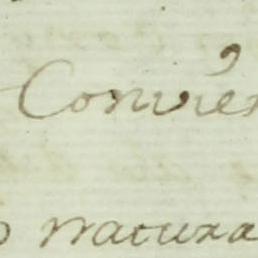 Convien
o natura